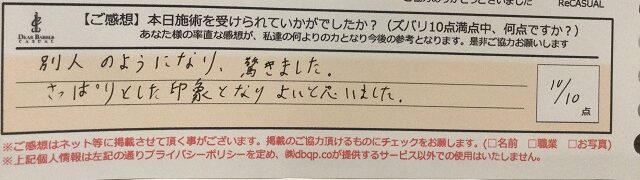 ReCASUAL
DEAR BARBER
CASUAL
【ご感想】本日施術を受けられていかがでしたか?(ズバリ10点満点中、何点ですか?)
あなた様の率直な感想が、私達の何よりの力となり今後の参考となります。是非ご協力お願いします
別人のようになり、驚きました。
さっぱりとした印象となりよいと思いました。
10/10
点
※ご感想はネット等に掲載させて頂く事がございます。掲載のご協力頂けるものにチェックをお願します。(□名前 □職業 □お写真)
※上記個人情報は左記の通りプライバシーポリシーを定め、㈱dbqp.coが提供するサービス以外での使用はいたしません。